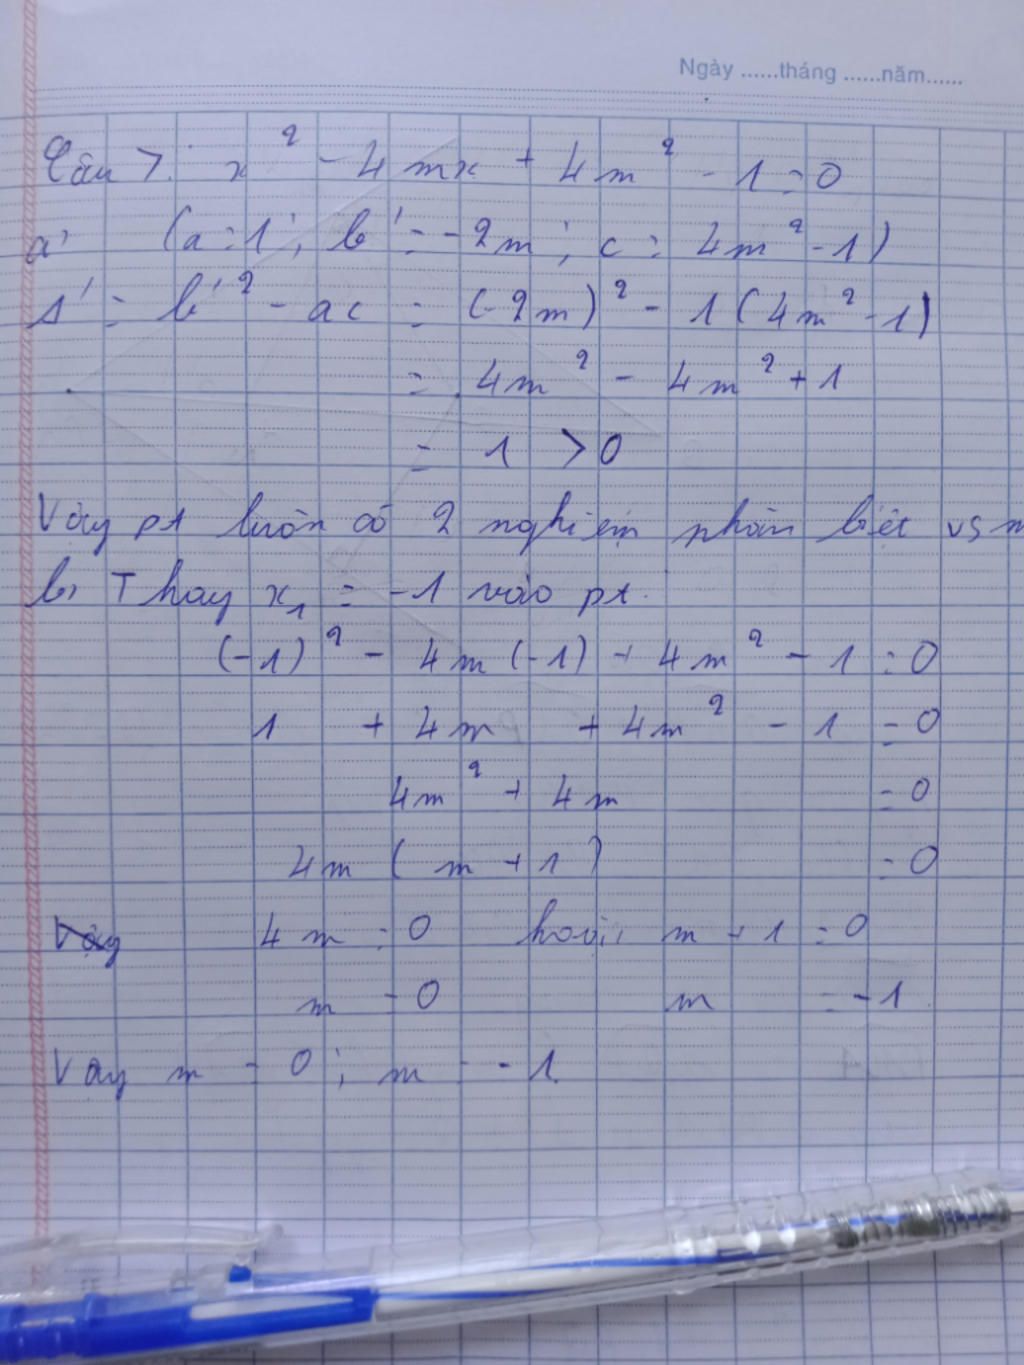 Ngày ......tháng ......năm......
Câu 7: x² - 4mx + 4m² - 1 = 0
a) (a = 1; b' = -2m; c = 4m² - 1)
Δ' = b'² - ac = (-2m)² - 1(4m² - 1)
= 4m² - 4m² + 1
= 1 > 0
Vậy pt luôn có 2 nghiệm phân biệt vs m
b) Thay x₁ = -1 vào pt.
(-1)² - 4m(-1) + 4m² - 1 = 0
1 + 4m + 4m² - 1 = 0
4m² + 4m = 0
4m (m + 1) = 0
4m = 0 hoặc m + 1 = 0
m = 0 m = -1
Vậy m = 0; m = -1.